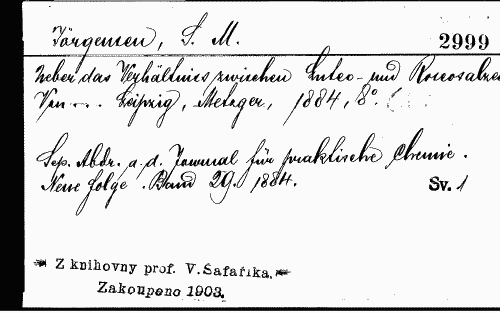 Jörgensen, S. M.
2999
Ueber das Verhältniss zwischen Luteo- und Roseosalzen
Von ... Leipzig, Metzger, 1884, 8°.
Sep. Abdr. a. d. Journal für praktische Chemie.
Neue Folge. Band 29. 1884.
Sv. 1
Z knihovny prof. V. Šafaříka.
Zakoupeno 1903.